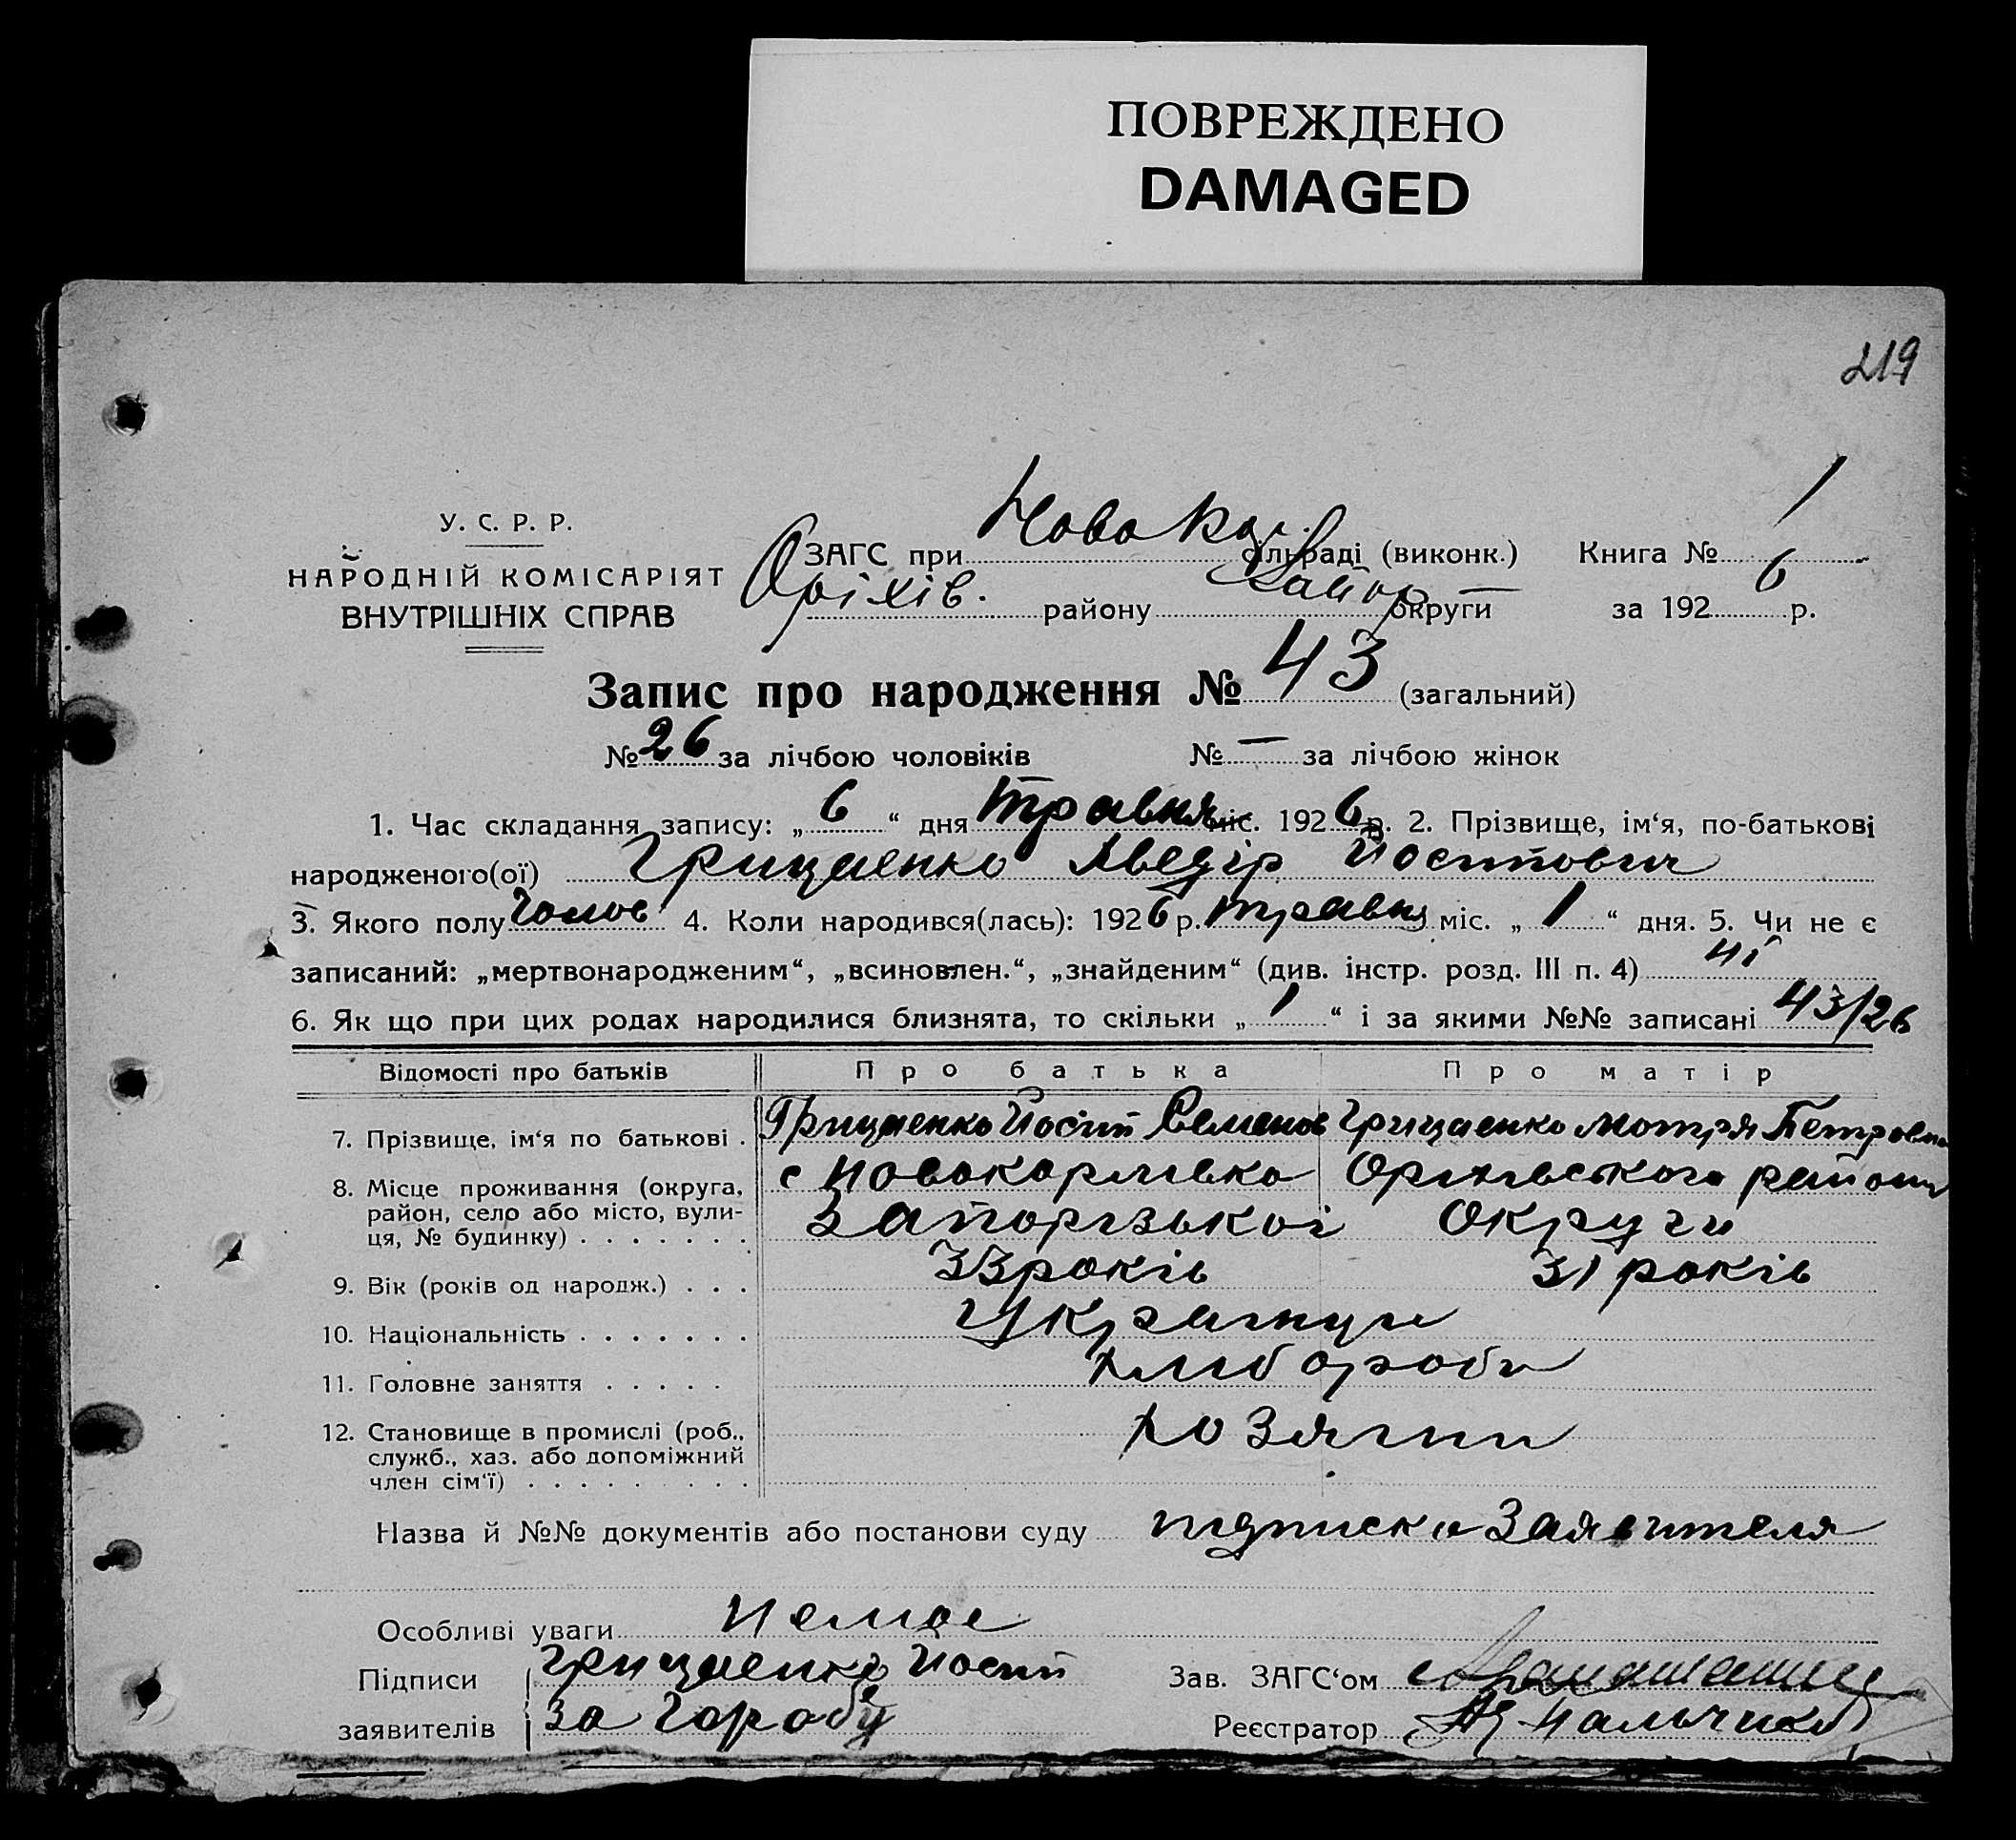 ПОВРЕЖДЕНО
DAMAGED
219
У. С. Р. Р.
НАРОДНІЙ КОМІСАРІЯТ
ВНУТРІШНІХ СПРАВ
ЗАГС при Ново Кар. сільраді (виконк.) Книга № 1
Оріхів. району Запор округи за 192 6 р.
Запис про народження № 43 (загальний)
№ 26 за лічбою чоловіків № — за лічбою жінок
1. Час складання запису: „ 6 “ дня травня міс. 192 6 р. 2. Прізвище, ім‘я, по-батькові
народженого(ої) Грицаенко Хведір Йосипович
3. Якого полу Чолов 4. Коли народився(лась): 192 6 р. травня міс. „ 1 “ дня. 5. Чи не є
записаний: „мертвонародженим“, „всиновлен.“, „знайденим“ (див. інстр. розд. III п. 4) ні
6. Як що при цих родах народилися близнята, то скільки „ 1 “ і за якими №№ записані 43/26
Відомості про батьків Про батька Про матір
7. Прізвище, ім‘я по батькові . Грицаенко Йосип Семенов Грицаенко Мотря Петровна
8. Місце проживання (округа, с Новокарлівка Оріхівського району
район, село або місто, вули- Запорізької Округи
ця, № будинку) . . . . . . .
9. Вік (років од народж.) . . . 33 років 31 років
10. Національність . . . . . . . Українци
11. Головне заняття . . . . . Хліб ороби
12. Становище в промислі (роб., хозяіни
служб., хаз. або допоміжний
член сім‘ї) . . . . . . . . .
Назва й №№ документів або постанови суду підписка Заявителя
Особливі уваги Немае
Підписи Грицаенко Йосип Зав. ЗАГС‘ом
заявителів За Горобу Реєстратор